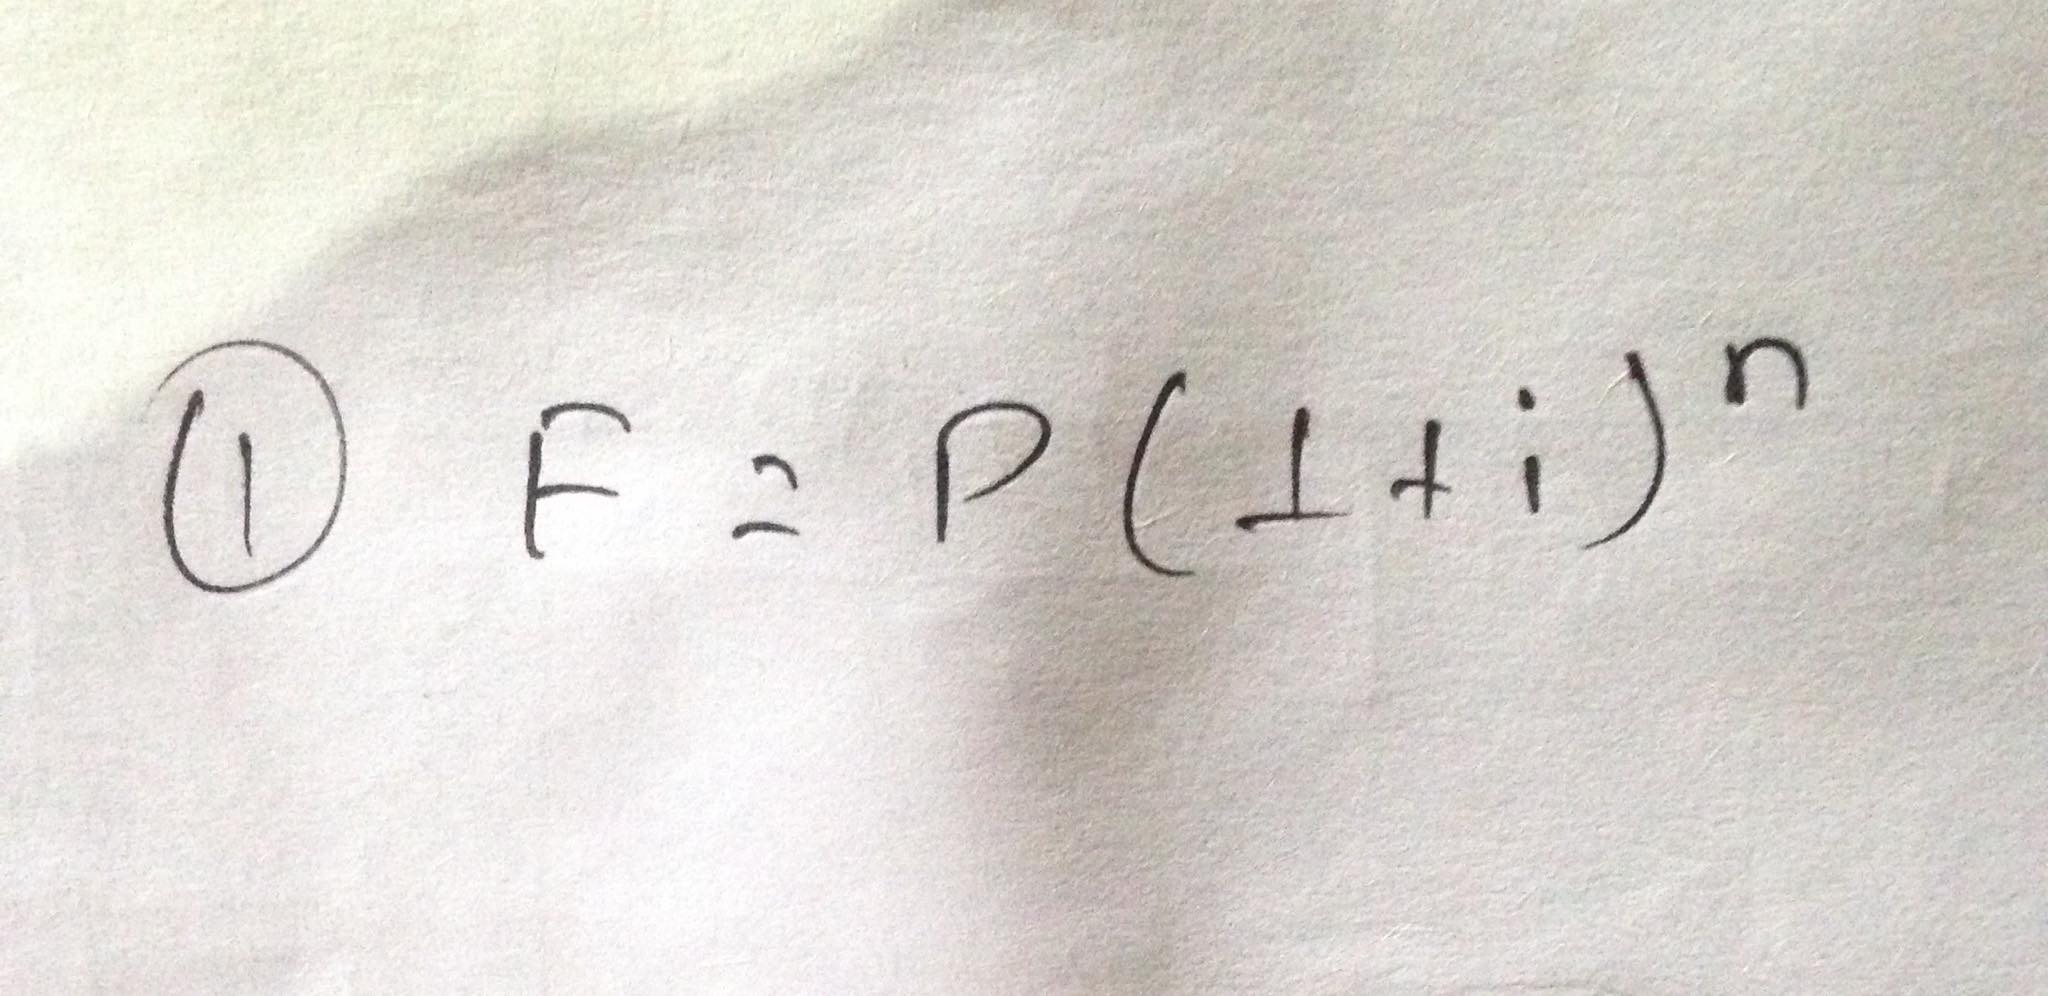 ① F = P(1+i)ⁿ